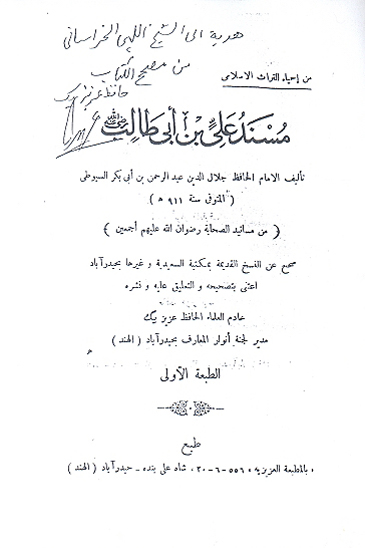 هدية الى الشيخ اللهى الخراسانى
من مصحح الكتاب
حافظ عزيز بيك
من إحياء التراث الاسلامى
مسند على بن أبى طالب
تأليف الامام الحافظ جلال الدين عبد الرحمن بن أبى بكر السيوطى
( المتوفى سنة ٩١١ ه )
( من مسانيد الصحابة رضوان الله عليهم أجمعين )
صحح عن النسخ القديمة بمكتبة السعيدية و غيرها بحيدرآباد
اعتنى بتصحيحه و التعليق عليه و نشره
خادم العلماء الحافظ عزيز بيك
مدير لجنة أنوار المعارف بحيدرآباد ( الهند )
الطبعة الأولى
طبع
بالمطبعة العزيزيه ٥٥٦-٦-٢٠، شاه على بنده - حيدرآباد ( الهند )